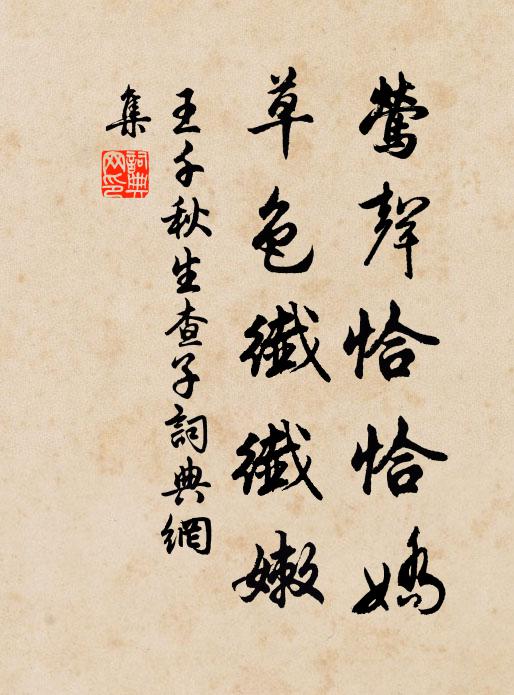 鶯聲恰恰嬌
草色纖纖嫩
王千秋生查子詞典網
集
詞典
网印